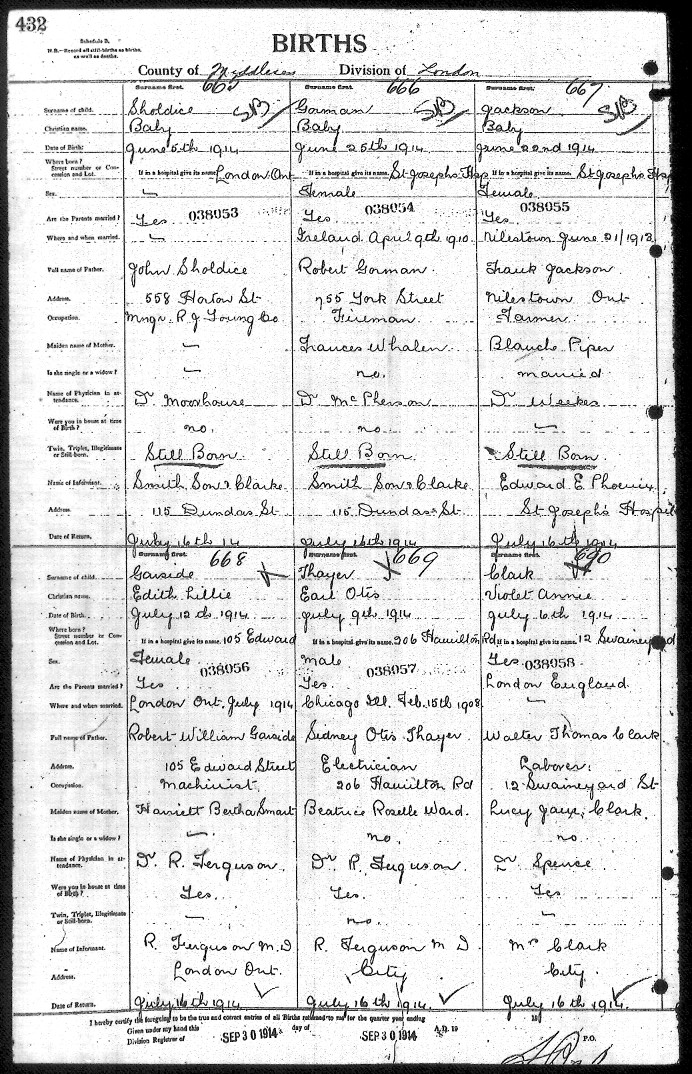 432
Schedule B.
N.B.—Record all still-births as births, as well as deaths.
BIRTHS
County of Middlesex Division of London
Surname first. 665 Surname first. 666 Surname first. 667
Surname of child. Sholdice SB Gorman SB Jackson SB
Christian name. Baby Baby Baby
Date of Birth: June 5th 1914 June 25th 1914 June 22nd 1914
Where born? Street number or Concession and Lot. If in a hospital give its name. London Ont If in a hospital give its name. St Josephs Hsp If in a hospital give its name. St Josephs Hsp
Sex. Female Female
Are the Parents married? Yes 038053 Yes 038054 Yes 038055
Where and when married. Ireland April 9th 1910 Nilestown June 21/1913
Full name of Father. John Sholdice Robert Gorman Frank Jackson
Address. 558 Horton St 755 York Street Nilestown Ont
Occupation. Mngr R. J. Young Co Fireman Farmer
Maiden name of Mother. Frances Whalen Blanche Piper
Is she single or a widow? no. married
Name of Physician in attendance. Dr Moorhouse Dr McPherson Dr Weekes
Were you in house at time of Birth? no. no
Twin, Triplet, Illegitimate or Still-born. Still Born Still Born Still Born
Name of Informant. Smith Son & Clarke Smith Son & Clarke Edward E Phoenix
Address. 115 Dundas St 115 Dundas St St Josephs Hospital
Date of Return. July 16th 14 July 16th 1914 July 16th 1914
Surname first. 668 Surname first. 669 Surname first. 690
Surname of child. Garside Thayer Clark
Christian name. Edith Lillie Earl Otis Violet Annie
Date of Birth July 12th 1914 July 9th 1914 July 6th 1914
Where born? Street number or Concession and Lot. If in a hospital give name. 105 Edward If in a hospital give name. 206 Hamilton Rd If in a hospital give its name. 12 Swaineyard
Sex. Female male Yes
Are the Parents married? Yes 038056 Yes. 038057 London England 038058
Where and when married. London Ont. July 1914 Chicago Ill. Feb. 15th 1908
Full name of Father. Robert William Garside Sidney Otis Thayer Walter Thomas Clark
Address. 105 Edward Street Electrician Laborer
Occupation. Machinist 206 Hamilton Rd 12 Swaineyard St
Maiden name of Mother. Harriett Bertha Smart Beatrice Roselle Ward. Lucy Clark.
Is she single or a widow? no. no
Name of Physician in attendance. Dr R. Ferguson Dr R. Ferguson Dr Spence
Were you in house at time of Birth? Yes. Yes. Yes
Twin, Triplet, Illegitimate or Still-born. no.
Name of Informant. R. Ferguson M.D R. Ferguson M D Mrs Clark
Address. London Ont. City City.
Date of Return. July 16th 1914 July 16th 1914. July 16th 1914.
I hereby certify the foregoing to be the true and correct entries of all Births returned to me for the quarter year ending 19
Given under my hand this SEP 30 1914 day of SEP 30 1914 A.D. 19
Division Registrar of P.O.